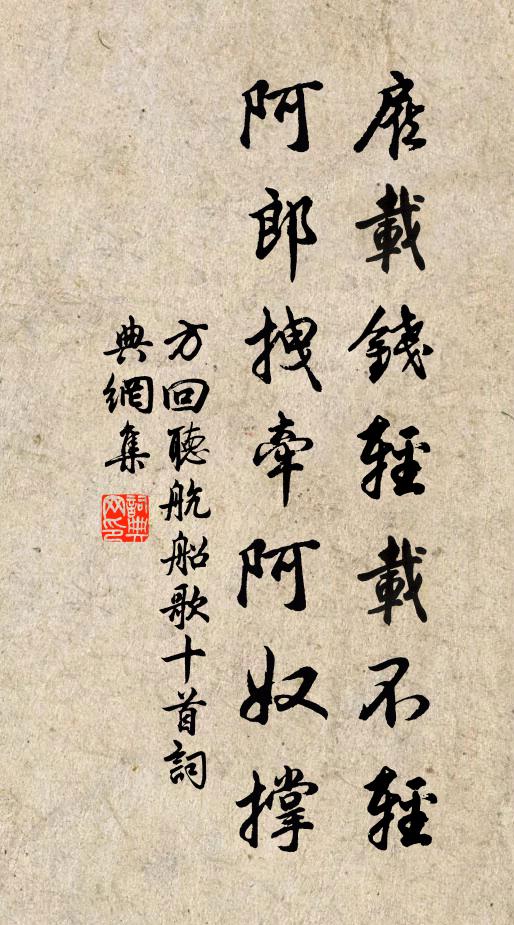 雇載錢輕載不輕
阿郎拽牽阿奴撐
方回聽航船歌十首詞
典網集
詞典
网印